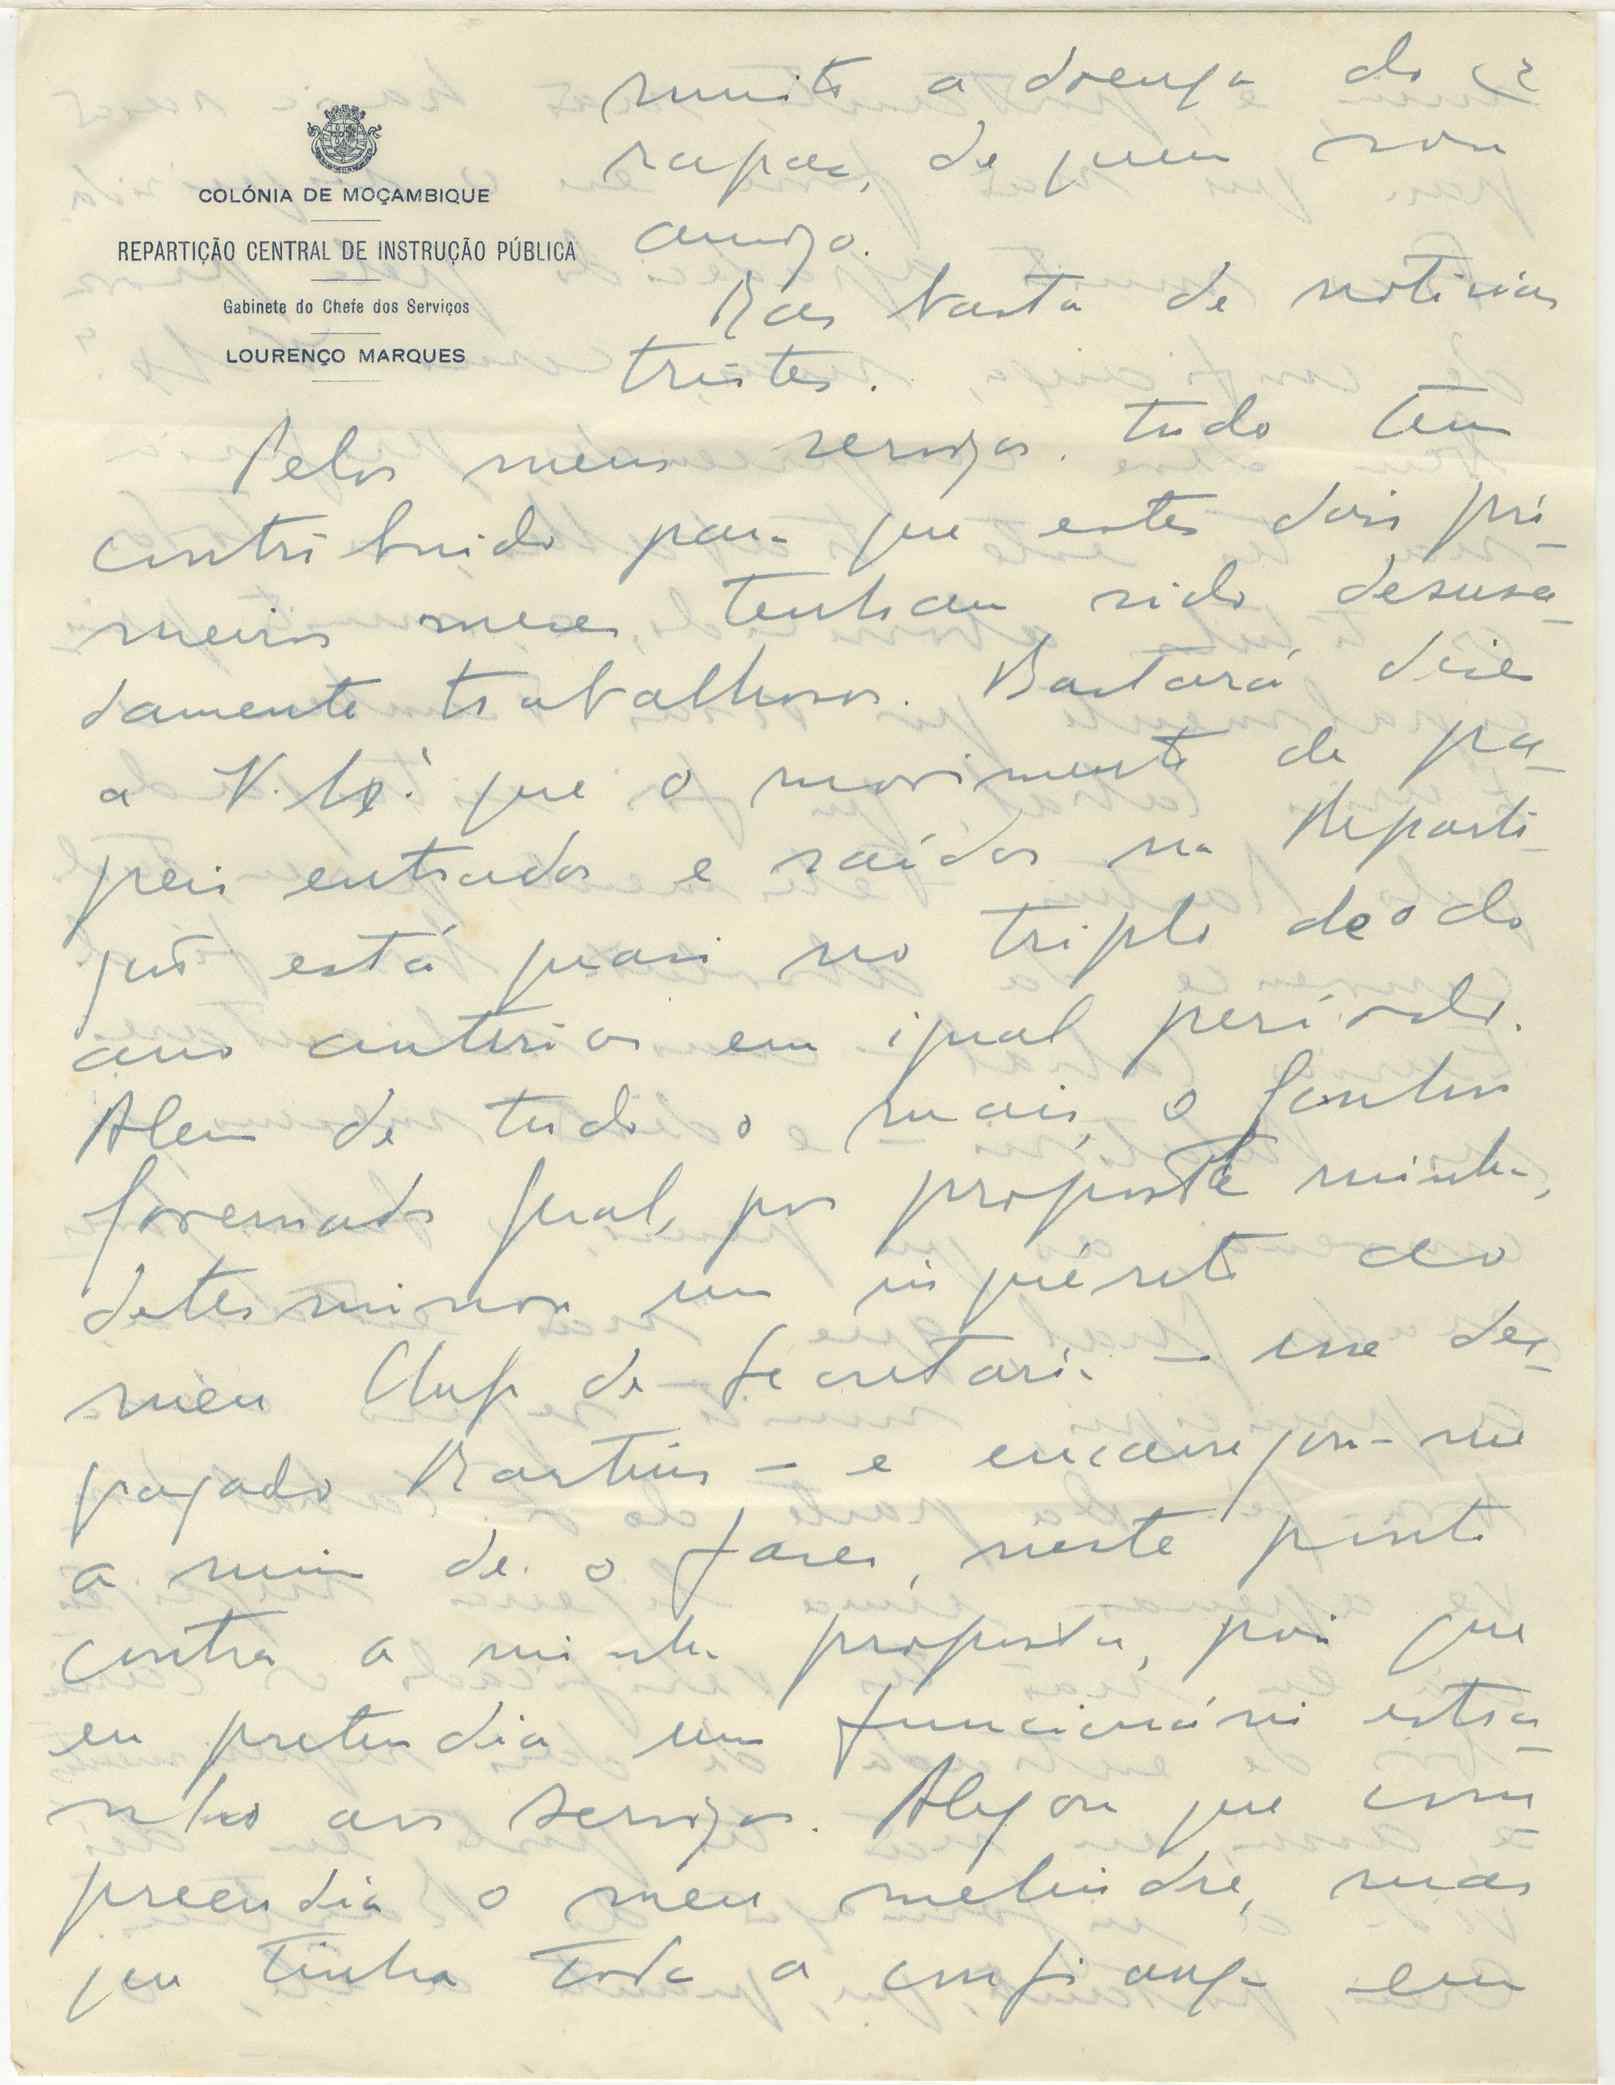 COLÓNIA DE MOÇAMBIQUE
REPARTIÇÃO CENTRAL DE INSTRUÇÃO PÚBLICA
Gabinete do Chefe dos Serviços
LOURENÇO MARQUES
muito a doença do
rapaz, de quem sou
amigo.
Mas basta de noticias
tristes.
Pelos meus serviços tudo tem
contribuido para que estes dois pri-
meiros meses tenham sido desusa-
damente trabalhosos. Bastará dizer
a V. Exª que o movimento de pa-
peis entrados e saídos na Reparti-
ção está quasi no triplo do do
ano anterior em igual período.
Alem de tudo o mais, o Senhor
Governador Geral, por proposta minha,
determinou um inquérito ao
meu Chefe de Secretaria - esse des-
graçado Martins - e encarregou-me
a mim de o fazer, neste ponto
contra a minha proposta, pois que
eu pretendia um funcionário estra-
nho aos serviços. Alegou que com
preendia o meu melindre, mas
que tinha toda a confiança em